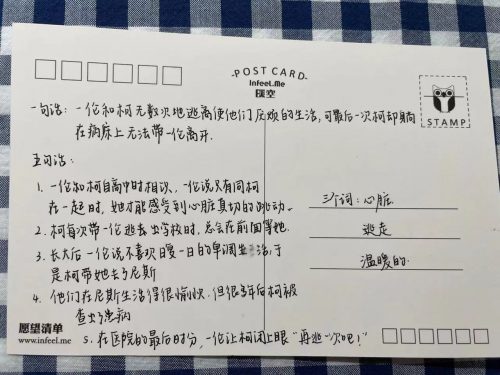 POST CARD
Infeel.Me
STAMP
一句话：一伦和柯无数次地逃离使他们厌烦的生活，可最后一次柯却躺
在病床上无法带一伦离开.
五句话：
1. 一伦和柯自高中时相识，一伦说只有同柯
在一起时，她才能感受到心脏真切的跳动。
2. 柯每次带一伦逃去出学校时，总会在前面等她.
3. 长大后一伦说不喜欢日复一日的单调生活，于
是柯带她去了尼斯
4. 他们在尼斯生活得很愉快.但很多年后柯被
查出了患病
5. 在医院的最后时分，一伦让柯闭上眼“再逃一次吧！”
三个词：心脏
逃走
温暖的
愿望清单
www.infeel.me